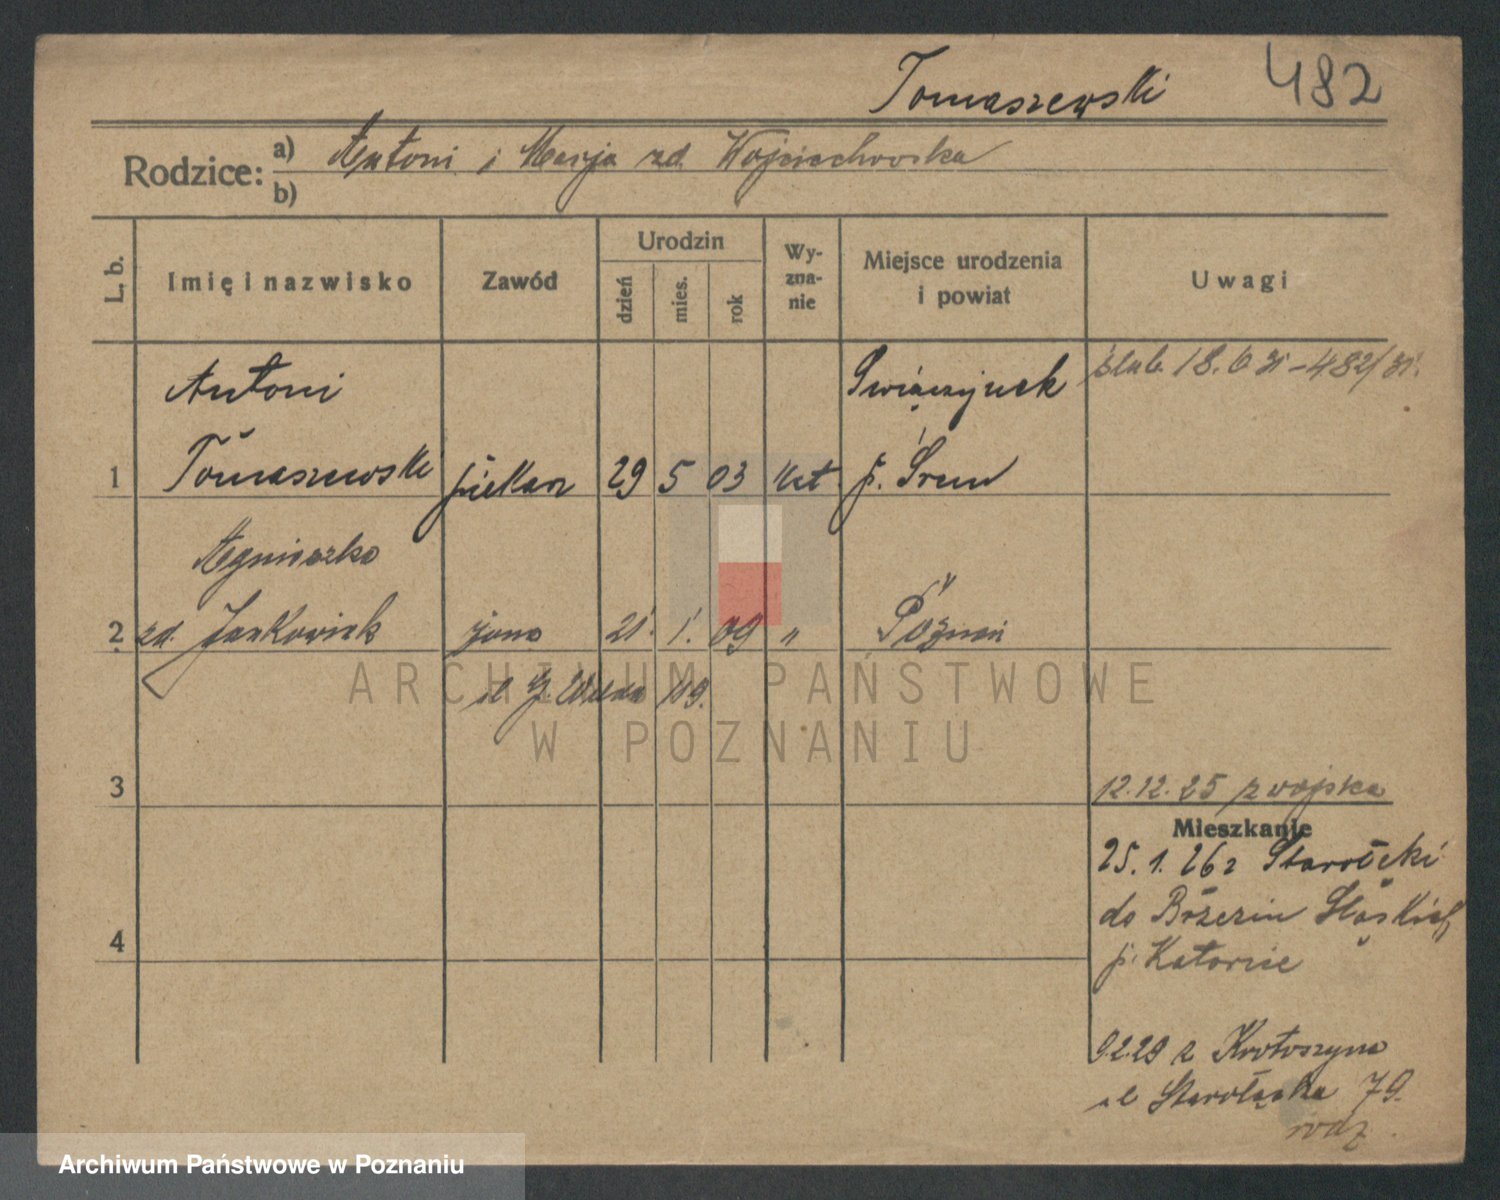 Tomaszewski 482
Rodzice: a) Antoni i Marja zd. Wojciechowska
b)
L. b. Imię i nazwisko Zawód Urodzin dzień mies. rok Wyznanie Miejsce urodzenia i powiat Uwagi
Antoni Świączynek ślub. 18. 6 31 - 482/31.
1 Tomaszewski piekarz 29 5 03 kat p. Śrem
Agnieszka
2 zd. Jankowiak żona 21. 1. 09 " Poznań
ul G. Wilda 119.
ARCHIWUM PAŃSTWOWE
W POZNANIU
3 12.12.25 z wojska
Mieszkanie
25. 1. 26 z Starołęki
do Brzezin Śląskich
4 p. Katowice
9.2.29 z Krotoszyna
ul Starołęcka 79.
rodz.
Archiwum Państwowe w Poznaniu